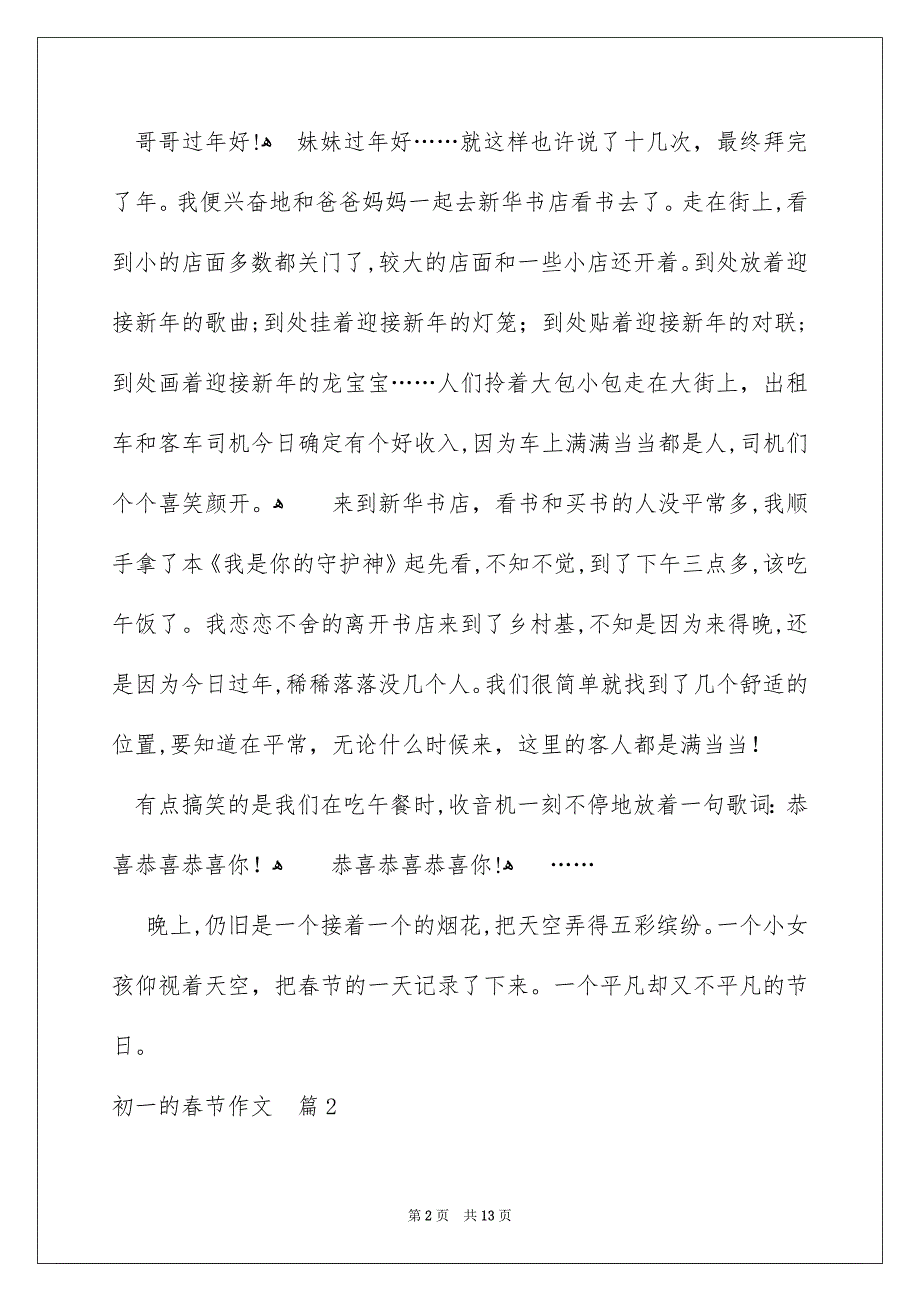 哥哥过年好!ﻫ 妹妹过年好……就这样也许说了十几次，最终拜完
了年。我便兴奋地和爸爸妈妈一起去新华书店看书去了。走在街上,看
到小的店面多数都关门了,较大的店面和一些小店还开着。到处放着迎
接新年的歌曲;到处挂着迎接新年的灯笼；到处贴着迎接新年的对联;
到处画着迎接新年的龙宝宝……人们拎着大包小包走在大街上，出租
车和客车司机今日确定有个好收入,因为车上满满当当都是人,司机们
个个喜笑颜开。ﻫ 来到新华书店，看书和买书的人没平常多,我顺
手拿了本《我是你的守护神》起先看,不知不觉,到了下午三点多,该吃
午饭了。我恋恋不舍的离开书店来到了乡村基,不知是因为来得晚,还
是因为今日过年,稀稀落落没几个人。我们很简单就找到了几个舒适的
位置,要知道在平常，无论什么时候来，这里的客人都是满当当！
有点搞笑的是我们在吃午餐时,收音机一刻不停地放着一句歌词：恭
喜恭喜恭喜你！ﻫ 恭喜恭喜恭喜你!ﻫ ……
晚上,仍旧是一个接着一个的烟花,把天空弄得五彩缤纷。一个小女
孩仰视着天空，把春节的一天记录了下来。一个平凡却又不平凡的节
日。
初一的春节作文 篇2
第 2 页 共 13 页